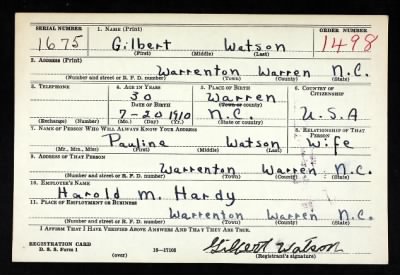 SERIAL NUMBER 1. NAME (Print) ORDER NUMBER
1675 Gilbert Watson 1498
(First) (Middle) (Last)
2. ADDRESS (Print)
Warrenton Warren N.C.
(Number and street or R. F. D. number) (Town) (County) (State)
3. TELEPHONE 4. AGE IN YEARS 5. PLACE OF BIRTH 6. COUNTRY OF CITIZENSHIP
30 Warren
DATE OF BIRTH (Town or county)
7-20 1910 N.C. U.S.A
(Exchange) (Number) (Mo.) (Day) (Yr.) (State or country)
7. NAME OF PERSON WHO WILL ALWAYS KNOW YOUR ADDRESS 8. RELATIONSHIP OF THAT PERSON
Pauline Watson Wife
(Mr., Mrs., Miss) (First) (Middle) (Last)
9. ADDRESS OF THAT PERSON
Warrenton Warren N.C.
(Number and street or R. F. D. number) (Town) (County) (State)
10. EMPLOYER'S NAME
Harold M. Hardy
11. PLACE OF EMPLOYMENT OR BUSINESS
Warrenton Warren N.C.
(Number and street or R. F. D. number) (Town) (County) (State)
I AFFIRM THAT I HAVE VERIFIED ABOVE ANSWERS AND THAT THEY ARE TRUE.
REGISTRATION CARD
D. S. S. Form 1 16-17105 Gilbert Watson
(over) (Registrant's signature)